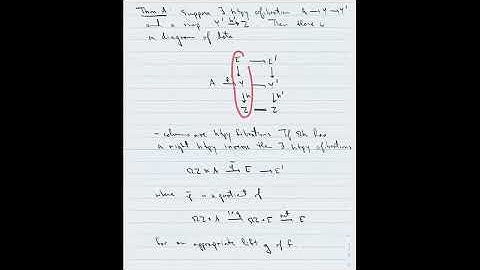 Thm A Suppose ∃ htpy cofibration A → Y → Y'
and a map Y' →h' Z. Then there is
a diagram of
E → E'
A →f Y → Y'
↓h ↓h'
Z — Z
- columns are htpy fibrations If Ωh has
a right htpy inverse then ∃ htpy cofibrations
ΩZ ⋉ A → E → E'
where is a quotient of
ΩZ × A → ΩZ × E → E
for an appropriate lift g of f.